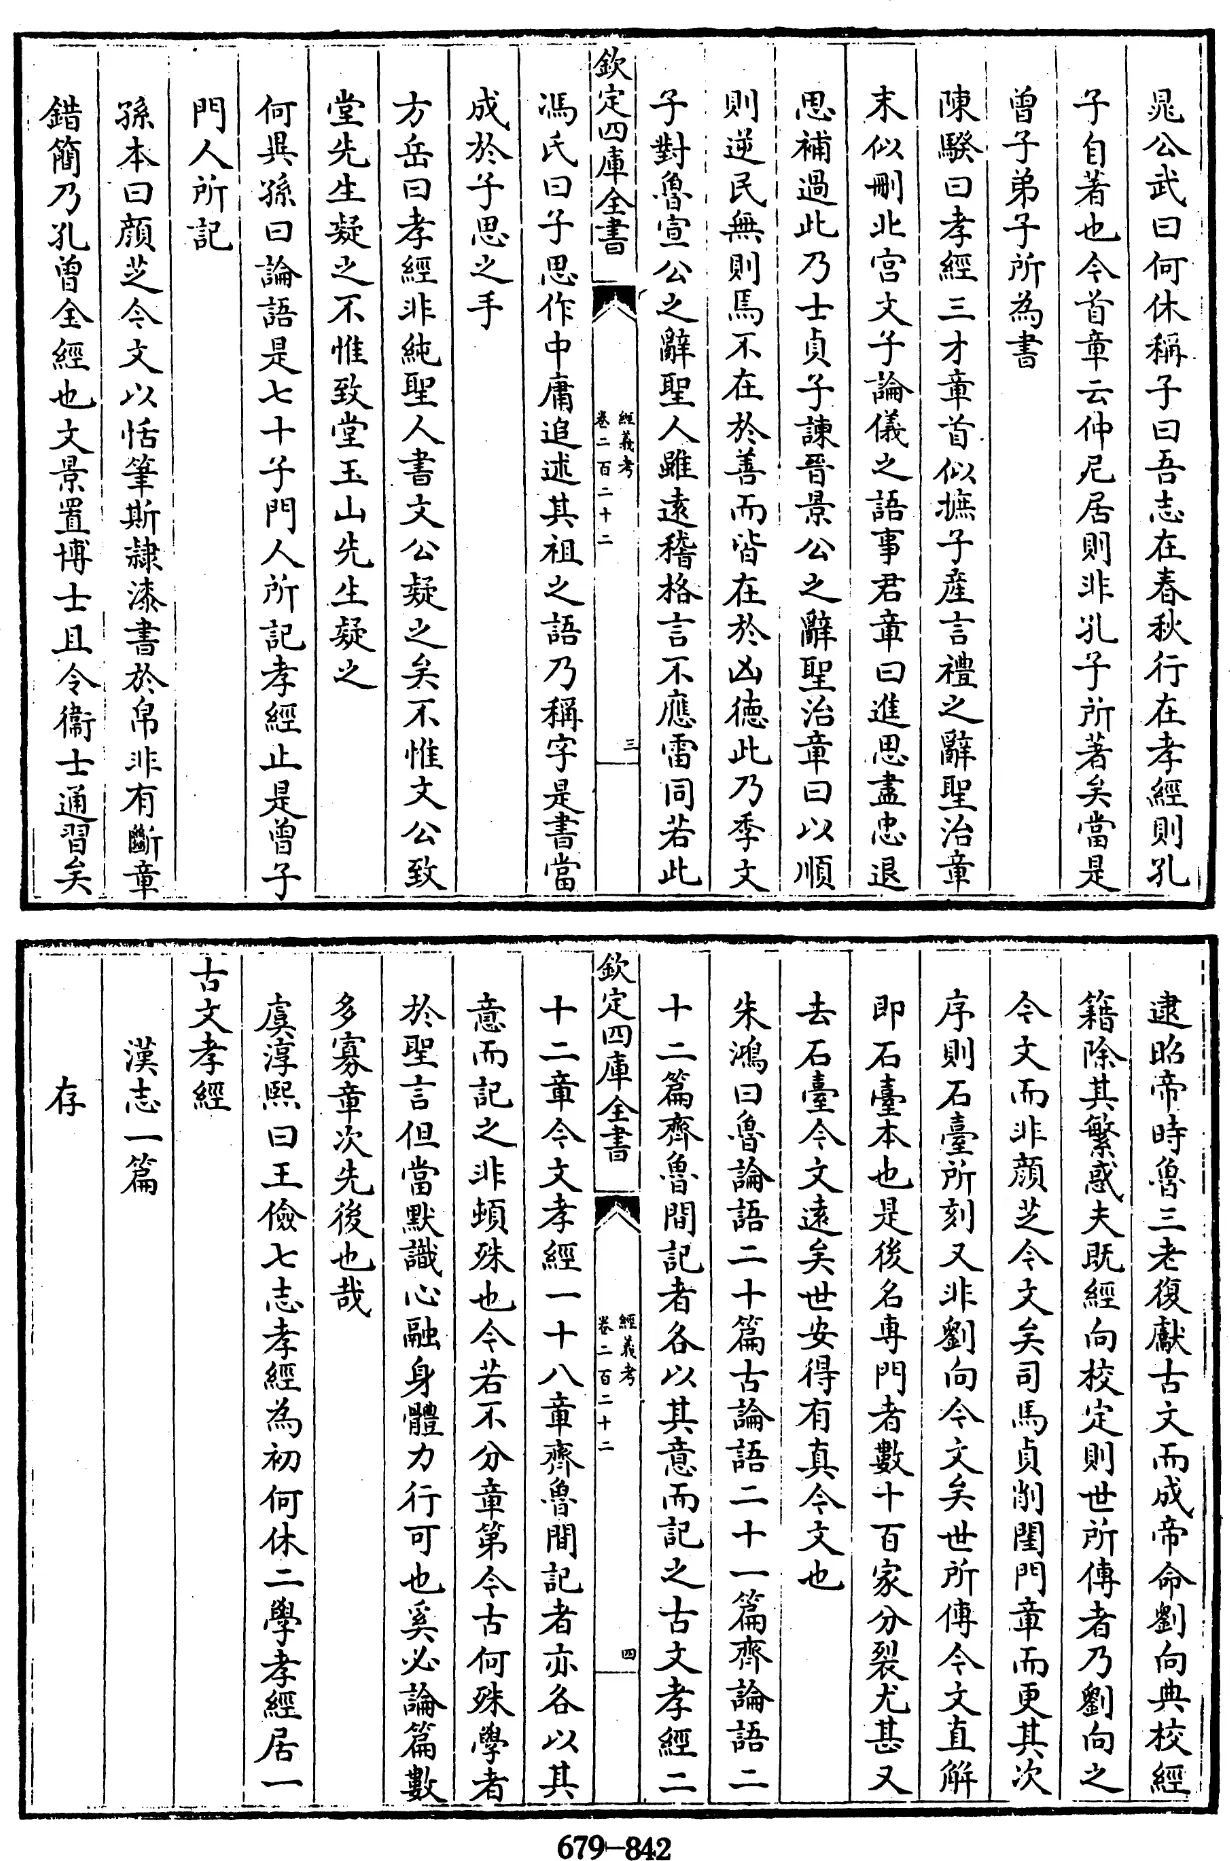 晁公武曰何休稱子曰吾志在春秋行在孝經則孔
子自著也今首章云仲尼居則非孔子所著矣當是
曾子弟子所為書
陳騤曰孝經三才章首似摭子產言禮之辭聖治章
末似刪北宮文子論儀之語事君章曰進思盡忠退
思補過此乃士貞子諫晉景公之辭聖治章曰以順
則逆民無則焉不在於善而皆在於凶德此乃季文
子對魯宣公之辭聖人雖遠稽格言不應雷同若此
欽定四庫全書
經義考
卷二百二十二
三
馮氏曰子思作中庸追述其祖之語乃稱字是書當
成於子思之手
方岳曰孝經非純聖人書文公疑之矣不惟文公致
堂先生疑之不惟致堂玉山先生疑之
何異孫曰論語是七十子門人所記孝經止是曾子
門人所記
孫本曰顏芝今文以恬筆斯隸漆書於帛非有斷章
錯簡乃孔曾全經也文景置博士且令衞士通習矣
逮昭帝時魯三老復獻古文而成帝命劉向典校經
籍除其繁惑夫既經向校定則世所傳者乃劉向之
今文而非顏芝今文矣司馬貞削閨門章而更其次
序則石臺所刻又非劉向今文矣世所傳今文直解
即石臺本也是後名專門者數十百家分裂尤甚又
去石臺今文遠矣世安得有真今文也
朱鴻曰魯論語二十篇古論語二十一篇齊論語二
十二篇齊魯間記者各以其意而記之古文孝經二
欽定四庫全書
經義考
卷二百二十二
四
十二章今文孝經一十八章齊魯間記者亦各以其
意而記之非頓殊也今若不分章第今古何殊學者
於聖言但當默識心融身體力行可也奚必論篇數
多寡章次先後也哉
虞淳熙曰王儉七志孝經為初何休二學孝經居一
古文孝經
漢志一篇
存
679-842